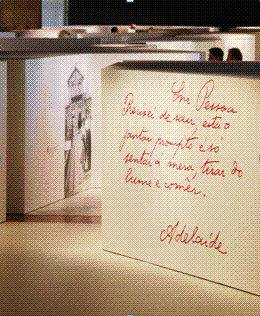 Sr. Pessoa
Precisei de sair, está o
jantar prompto e só
sentar a mesa, tirar do
lume e comer.
Adelaide